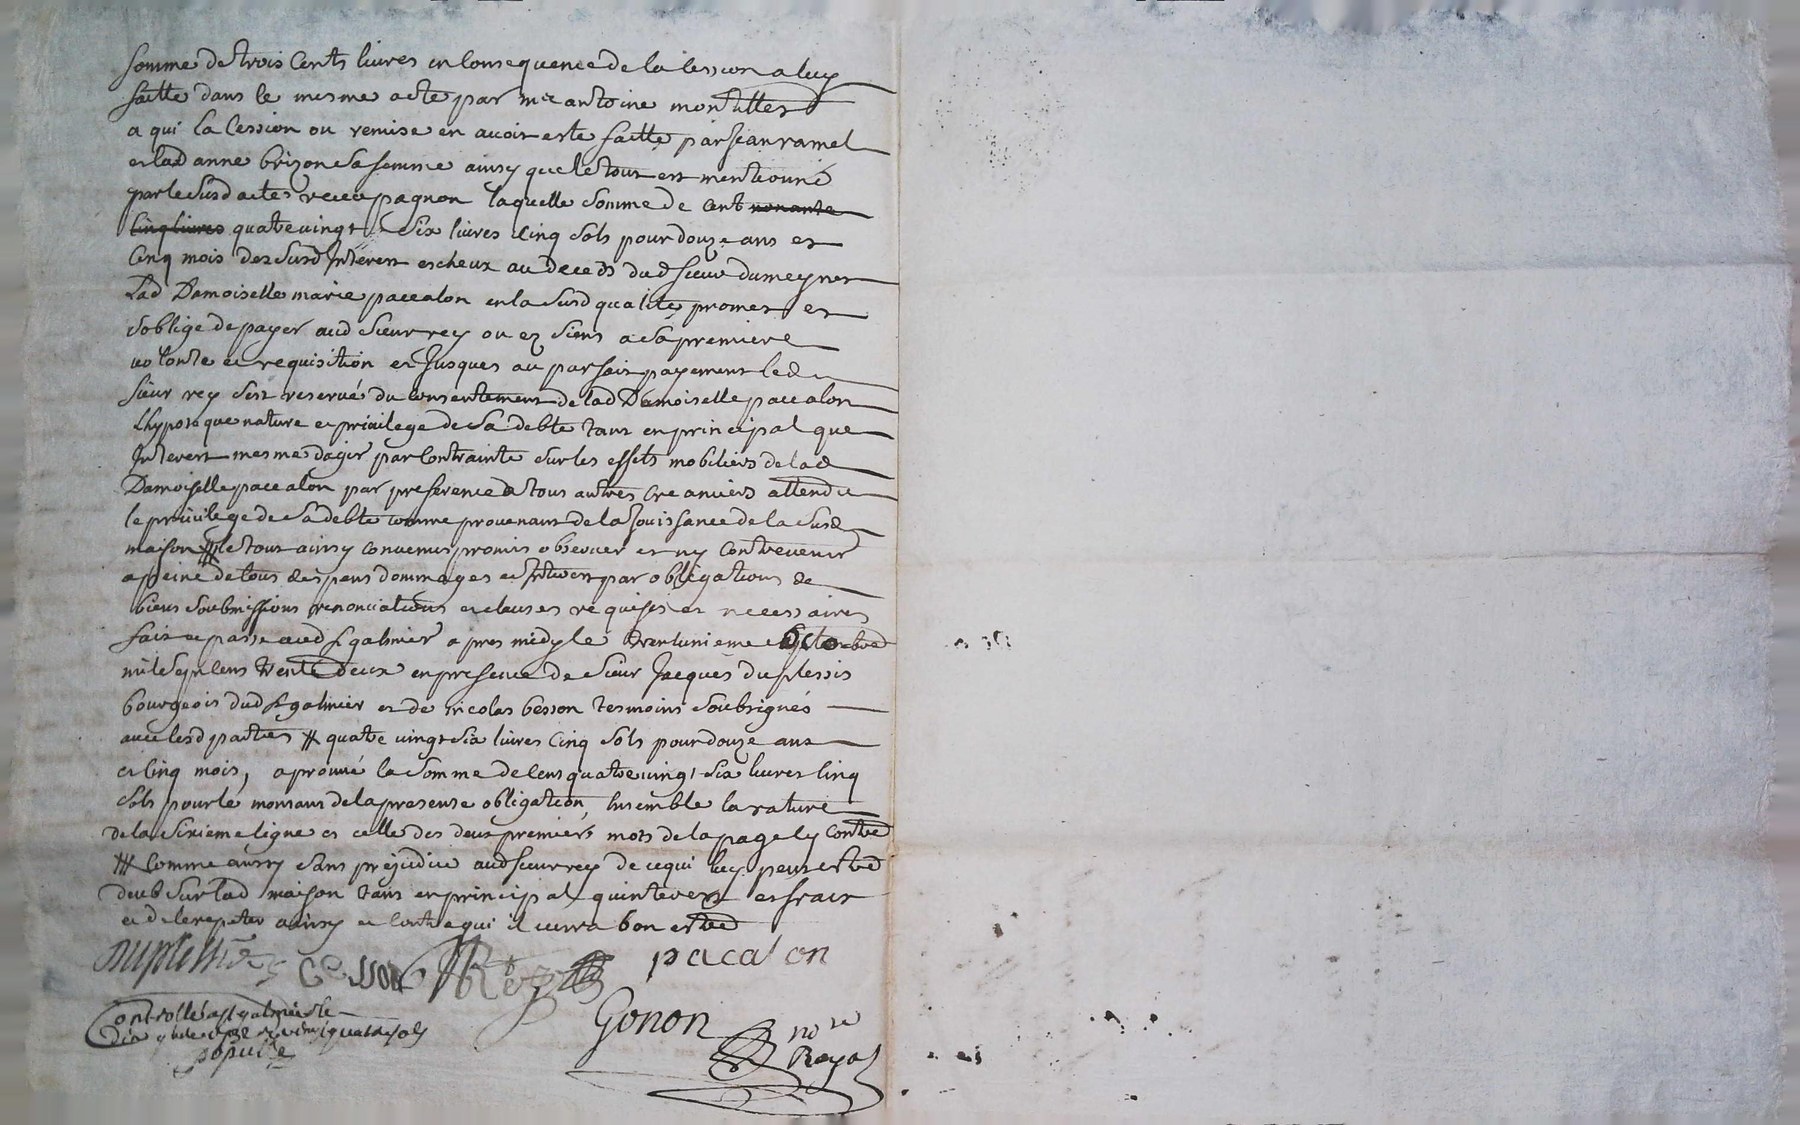 somme de trois cents livres en consequence de la cession a luy
faitte dans le mesme acte par mre antoine montillet
a qui la cession ou remise en avoit este faitte par jean ramel
et lad anne brizon sa femme ainsy que le tout est mentionné
par le susd acte receu pagnon laquelle somme de cent nonante
cinq livres quatre vingt six livres cinq sols pour douze ans et
cinq mois des susd Interest escheux au deceds dud sieur dumeynet
Lad Damoiselle marie paccalon en la susd qualité promet et
soblige de payer aud sieur rey ou ez siens a sa premiere
volonte et requisition et Jusques au parfait payement led
sieur rey sest reservé du consentement de lad Damoiselle paccalon
Lhypoteque nature et privilege de sa debte tant en principal que
Interest mesme dagir par contrainte sur les effets mobiliers de lad
Damoiselle paccalon par preference a tous autres creanciers attendu
le privilege de sa debte comme provenant de la Jouissance de la susd
maison # le tout ainsy convenu promis observer et ny contrevenir
a peine de tous despens dommages et Interest par obligations de
biens soubmissions renonciations et clauses requises et necessaires
fait et passe aud st galmier apres midy le trentunieme octobre
mil sept cens trente deux en presence de sieur Jacques duplessis
bourgeois dud st galmier et de nicolas besson tesmoins soubsignés
avec lesd parties # quatre vingt six livres cinq sols pour douze ans
et cinq mois, aprouvé la somme de cens quatre vingt six livres cinq
sols pour le montant de la presente obligation, Ensemble la rature
de la sixieme ligne et celle des deux premiers mots de la page cy contre
# comme aussy sans prejudice aud sieur rey de ce qui luy peut estre
deub sur lad maison tant en principal quinterest et frais
et de le repeter ainsy et contre qui il verra bon estre
duplessis besson Rey pacalon
Controllé a st galmier le
Gonon nore
Royal